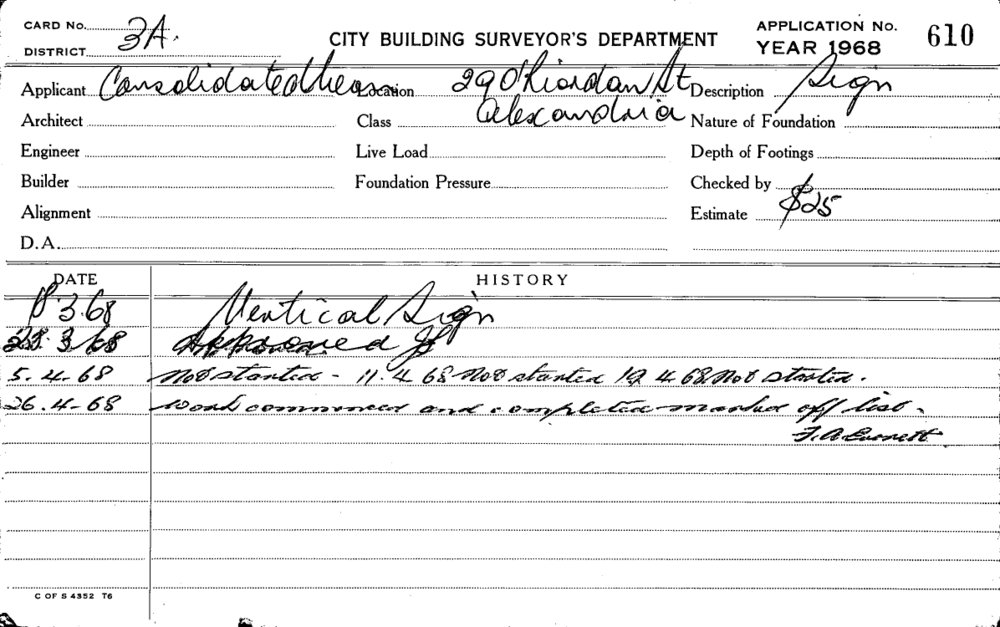 CARD No. 3A.
DISTRICT
CITY BUILDING SURVEYOR'S DEPARTMENT
APPLICATION No. 610
YEAR 1968
Applicant Consolidated Location 29 O'Riordan St Description Sign
Architect Class Alexandria Nature of Foundation
Engineer Live Load Depth of Footings
Builder Foundation Pressure Checked by
Alignment Estimate $25
D.A.
DATE HISTORY
3.68 Vertical Sign
3 68 Approved
5.4.68 Not started - 11.4 68 Not started 19 4 68 Not started.
26.4-68 Work commenced and completed marked off list.
F.A. Everett
C OF S 4352 T6